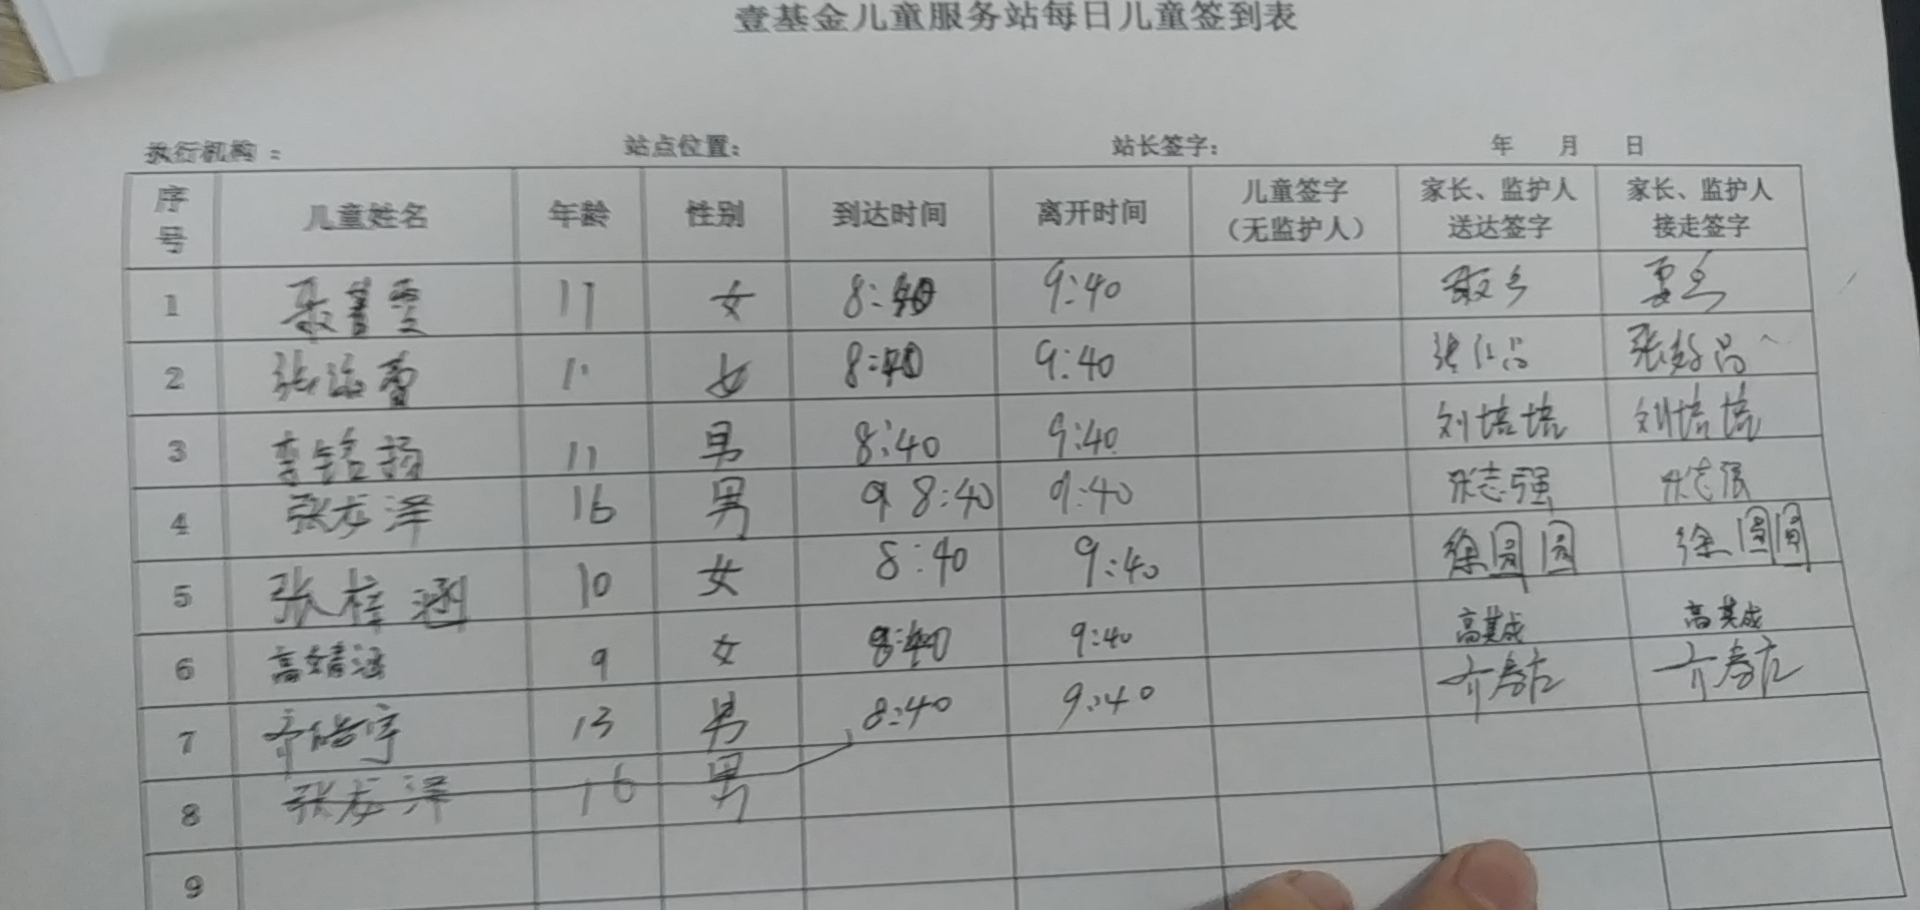 壹基金儿童服务站每日儿童签到表
执行机构： 站点位置： 站长签字： 年 月 日
序号 儿童姓名 年龄 性别 到达时间 离开时间 儿童签字（无监护人） 家长、监护人送达签字 家长、监护人接走签字
1 11 女 8:40 9:40
2 张 11 女 8:40 9:40 张
3 李铭扬 11 男 8:40 9:40 刘培培 刘培培
4 张龙泽 16 男 9 8:40 9:40 张志强 张志强
5 张梓涵 10 女 8:40 9:40 徐圆圆 徐圆圆
6 高婧涵 9 女 8:40 9:40 高其成 高其成
7 齐皓宇 13 男 8:40 9:40 齐 齐
8 张龙泽 16 男
9